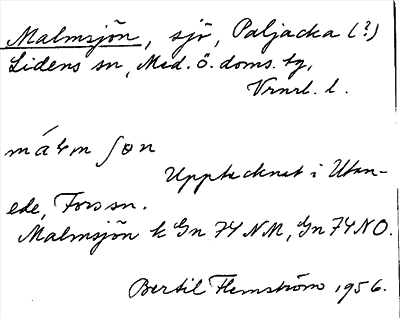 Malmsjön, sjö, Paljacka (?)
Lidens sn, Med. ö. doms. tg,
Vrnrl. l.
málm ʃɵn
Upptecknat i Utan-
ede, Fors sn.
Malmsjön k Gn 74 NM, Gn 74 NO.
Bertil Flemström 1956.